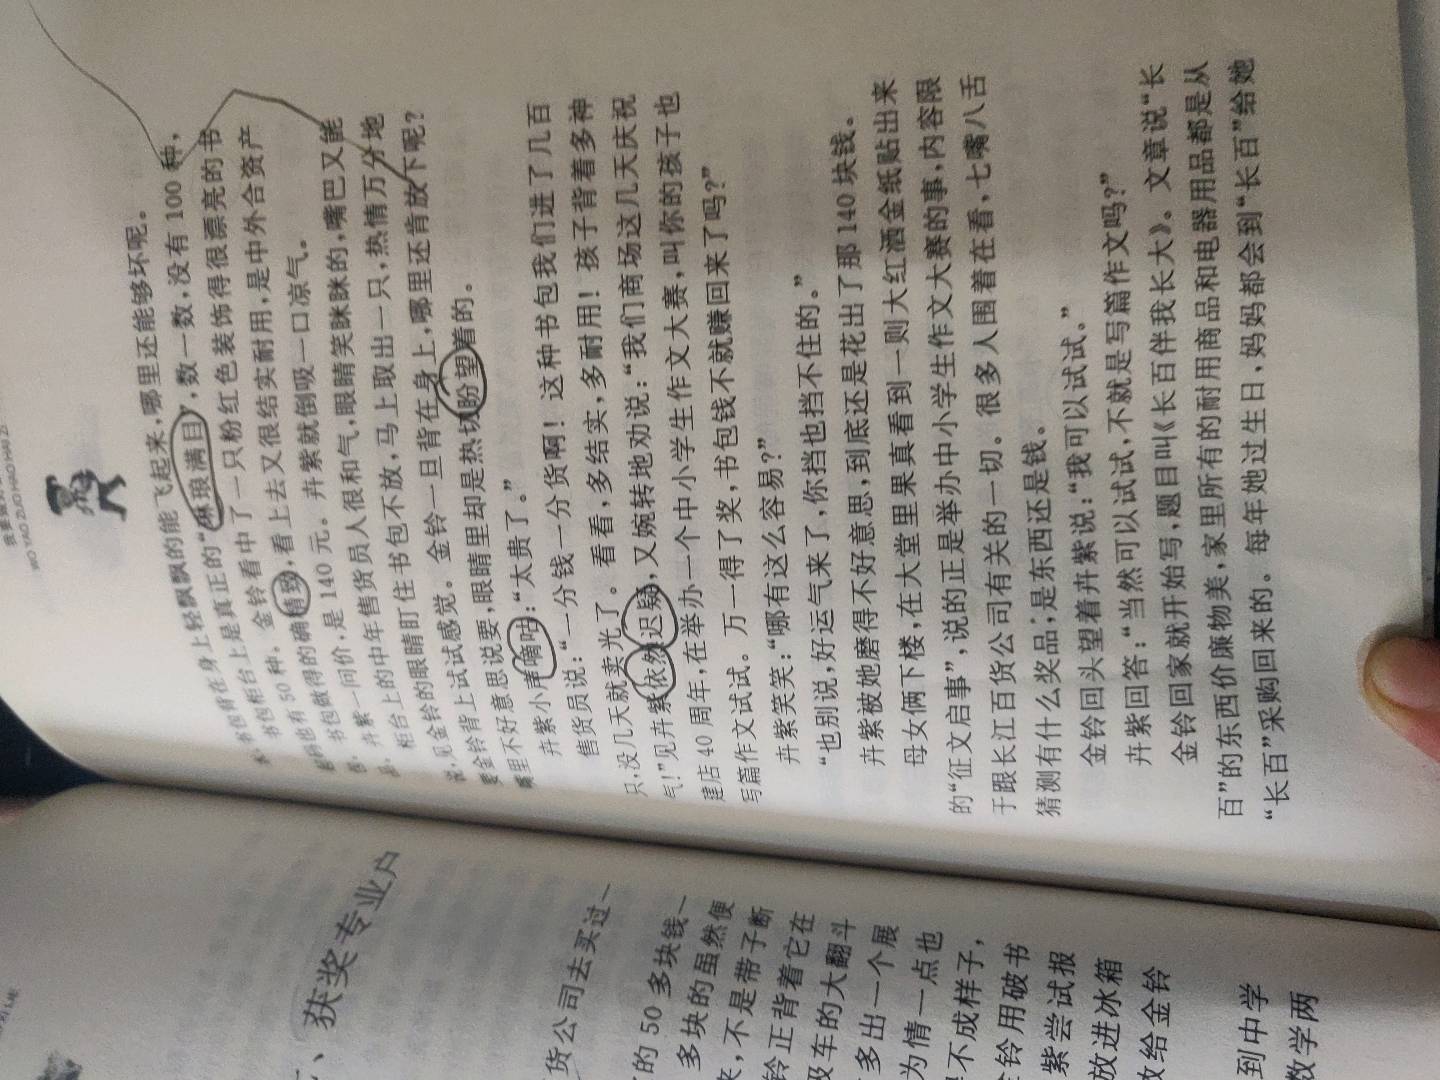 我要做好孩子
WO YAO ZUO HAO HAI ZI
书包背在身上轻飘飘的能飞起来,哪里还能够坏呢。
书包柜台上是真正的“琳琅满目”,数一数,没有100种,
也有50种。金铃看中了一只粉红色装饰得很漂亮的书
书包做得的确精致,看上去又很结实耐用,是中外合资产
卉紫一问价,是140元。卉紫就倒吸一口凉气。
柜台上的中年售货员人很和气,眼睛笑眯眯的,嘴巴又能
见金铃的眼睛盯住书包不放,马上取出一只,热情万分地
要金铃背上试试感觉。金铃一旦背在身上,哪里还肯放下呢?
嘴里不好意思说要,眼睛里却是热切盼望着的。
卉紫小声嘀咕:“太贵了。”
售货员说:“一分钱一分货啊!这种书包我们进了几百
只,没几天就卖光了。看看,多结实,多耐用!孩子背着多神
气!”见卉紫依然迟疑,又婉转地劝说:“我们商场这几天庆祝
建店40周年,在举办一个中小学生作文大赛,叫你的孩子也
写篇作文试试。万一得了奖,书包钱不就赚回来了吗?”
卉紫笑笑:“哪有这么容易?”
“也别说,好运气来了,你挡也挡不住的。”
卉紫被她磨得不好意思,到底还是花出了那140块钱。
母女俩下楼,在大堂里果真看到一则大红洒金纸贴出来
的“征文启事”,说的正是举办中小学生作文大赛的事,内容限
于跟长江百货公司有关的一切。很多人围着在看,七嘴八舌
猜测有什么奖品,是东西还是钱。
金铃回头望着卉紫说:“我可以试试。”
卉紫回答:“当然可以试试,不就是写篇作文吗?”
金铃回家就开始写,题目叫《长百伴我长大》。文章说“长
百”的东西价廉物美,家里所有的耐用商品和电器用品都是从
“长百”采购回来的。每年她过生日,妈妈都会到“长百”给她
、获奖专业户
货公司去买过一
的50多块钱一
多块的虽然便
来,不是带子断
铃正背着它在
圾车的大翻斗
多出一个展
为情一点也
不成样子,
金铃用破书
紫尝试报
放进冰箱
给金铃
到中学
数学两